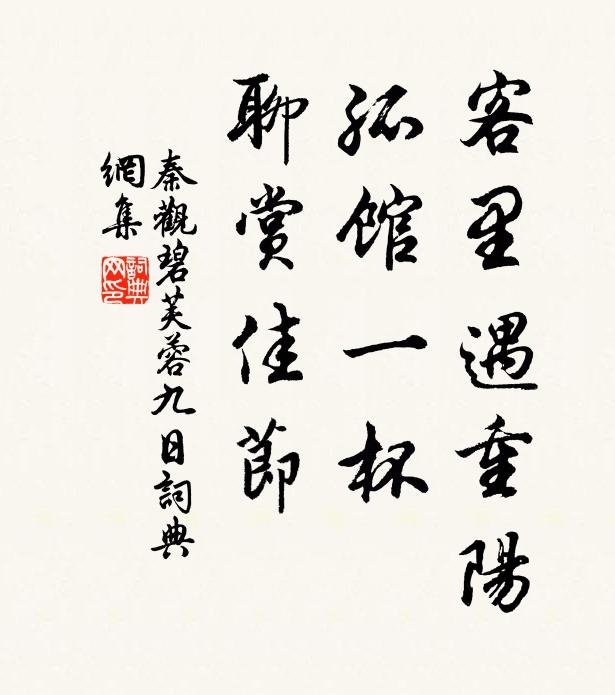 客里遇重陽
孤館一杯
聊賞佳節
秦觀碧芙蓉九日詞典
網集
詞典網印